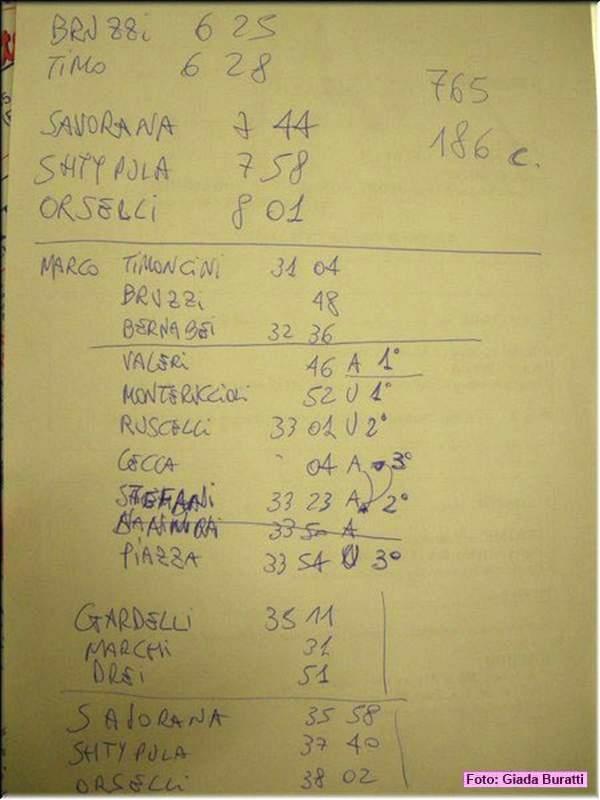 BRUZZi 6 25
TiMO 6 28
765
SAVORANA 7 44
186 c.
SHTYPULA 7 58
ORSELLi 8 01
MARCO TiMONCiNi 31 04
BRUZZi 48
BERNABEi 32 36
VALERi 46 A 1°
MONTERiCCiOLi 52 U 1°
RUSCELLi 33 01 U 2°
CECCA 04 A 3°
STEFANi 33 23 A 2°
33 50 A
PiAZZA 33 54 U 3°
GARDELLi 35 11
MARCHi 31
DREi 51
SAVORANA 35 58
SHTYPULA 37 40
ORSELLi 38 02
Foto: Giada Buratti